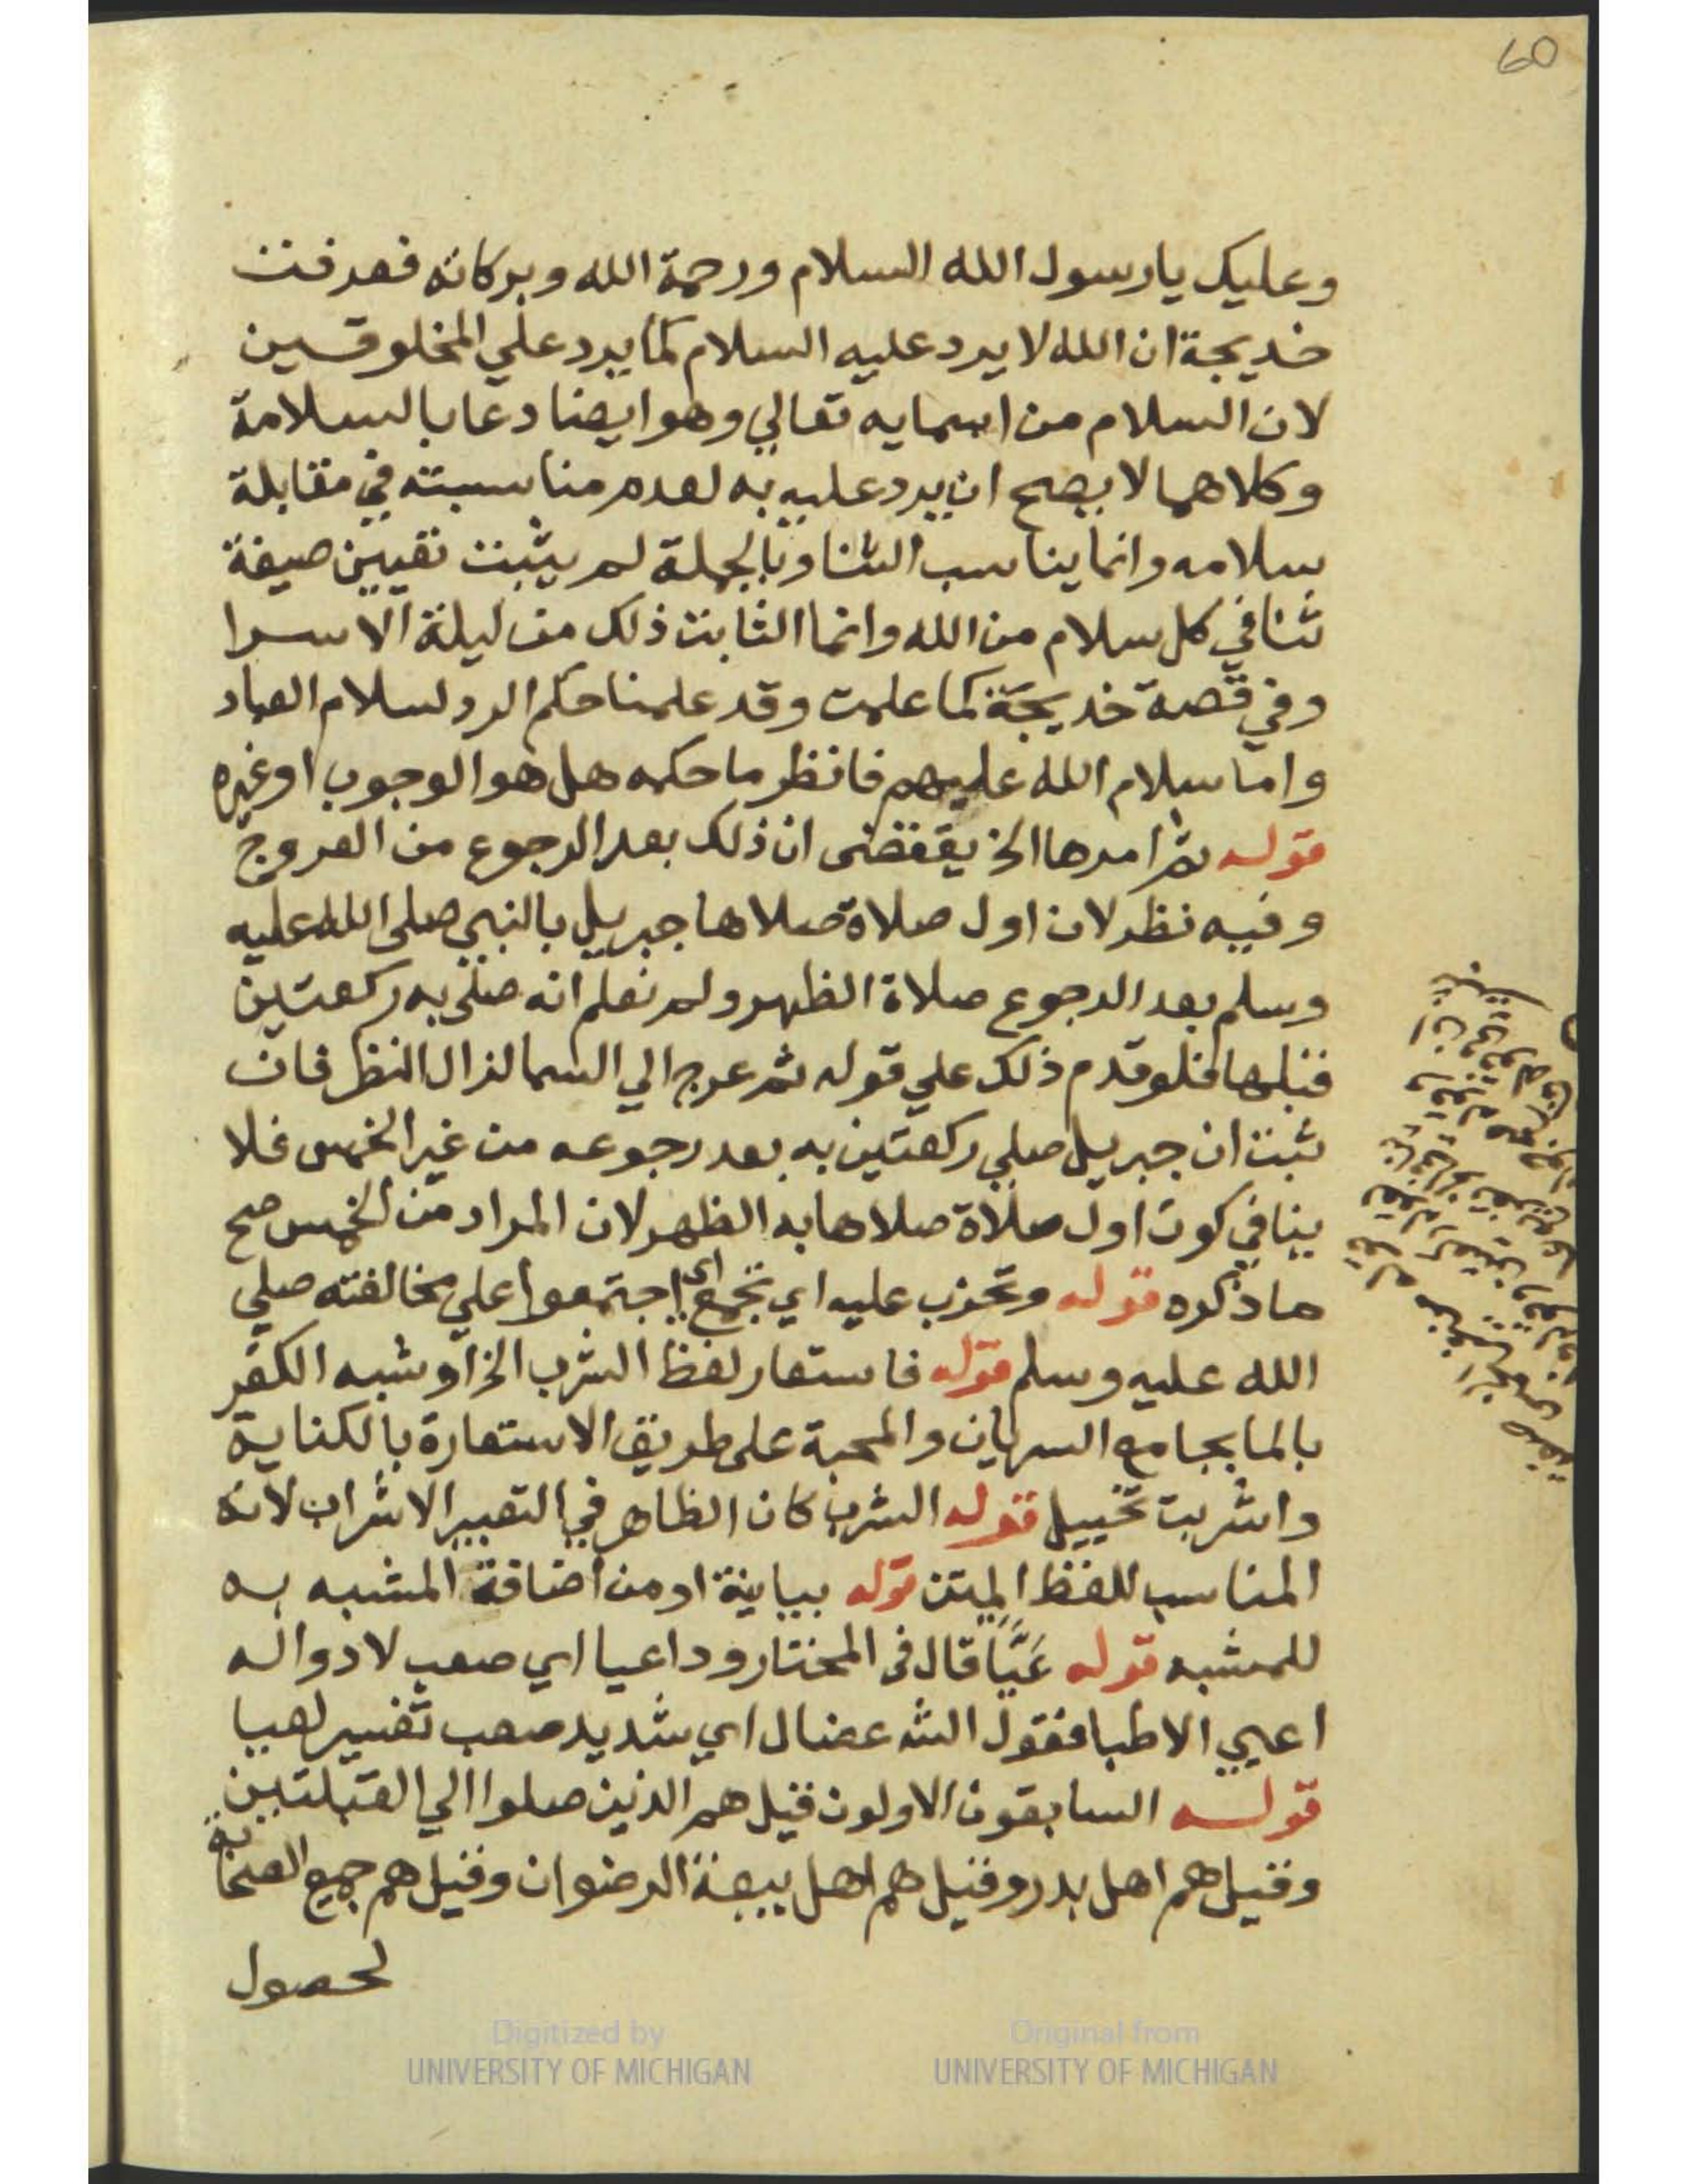 60
وعليك يا رسول الله السلام ورحمة الله وبركاته فعرفت
خديجة ان الله لا يرد عليه السلام كما يرد علي المخلوقين
لان السلام من اسمايه تعالي وهو ايضا دعا بالسلامة
وكلاهما لا يصح ان يرد عليه به لعدم مناسبته في مقابلة
سلامه وانما يناسب الثنا وبالجملة لم يثبت تعيين صيغة
ثنا في كل سلام من الله وانما الثابت ذلك من ليلة الاسرا
وفي قصة خديجة كما علمت وقد علمنا حكم الرد لسلام العباد
واما سلام الله عليهم فانظر ما حكمه هل هو الوجوب او غيره
قوله ثم امرها الخ يقتضى ان ذلك بعد الرجوع من العروج
وفيه نظر لان اول صلاة صلاها جبريل بالنبي صلى الله عليه
وسلم بعد الرجوع صلاة الظهر ولم نعلم انه صلى به ركعتين
قبلها فلو قدم ذلك علي قوله ثم عرج الي السما لزال النظر فان
ثبت ان جبريل صلي ركعتين به بعد رجوعه من غير الخمس فلا
ينافي كون اول صلاة صلاها به الظهر لان المراد من الخمس صح
ما ذكره قوله وتحزب عليه اي تجمع اي اجتمعوا علي مخالفته صلي
الله عليه وسلم قوله فاستعار لفظ الشرب الخ او شبه الكفر
بالما بجامع السريان والمحبة على طريق الاستعارة بالكناية
واشربت تخييل قوله الشرب كان الظاهر في التعبير الاشراب لانه
المناسب للفظ المتن قوله بيانية او من اضافة المشبه به
للمشبه قوله عَيَّا قال فى المختار وداعيا اي صعب لا دوا له
اعيي الاطبا فقول الشه عضال اي شديد صعب تفسير لعيا
قوله السابقون الاولون قيل هم الذين صلوا الي القبلتين
وقيل هم اهل بدر وقيل هم اهل بيعة الرضوان وقيل هم جميع الصحابة
لحصول
Digitized by
UNIVERSITY OF MICHIGAN
Original from
UNIVERSITY OF MICHIGAN